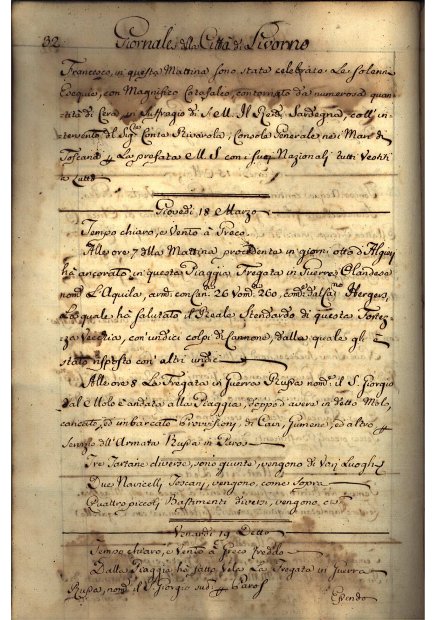 32 Giornale della Città di Livorno
Francesco, in questa Mattina sono state celebrate Le Solenni
Esequie, con Magnifico Catafalco, contornato da numerosa quan-
tità di Cera, in suffragio di S. M. Il Re di Sardegna, coll'in-
tervento del Sigr. Conte Rivarola, Console Generale nei Mari di
Toscana La prefata M. S. con i suoi Nazionali tutti Vestiti
a Lutto
Giovedì 18 Marzo
Tempo chiaro, e Vento à Greco.
Alle ore 7 della Mattina procedente in giorni otto d'Algieri
hà ancorato in questa Piaggia Fregata in Guerra Olandese
nom. L'Aquila, arm. con Can. 26 Vom. 260, com. dal Cap.no
La quale hà salutato il Reale Stendardo di questa Fortez-
za Vecchia, con undici colpi di Cannone, dalla quale gli è
stato risposto con altri undici
Alle ore 8 La Fregata in Guerra Russa nom. il S. Giorgio
dal Molo è andata alla Piaggia, doppo d'avere in detto Mol.
caricato, ed imbarcato Provvisioni, di Cavi, Gumene, ed altro p
servizio dell'Armata Russa in Paros
Tre Tartane diverse, sono giunte, vengono di Varj Luoghi
Due Navicelli Toscani, vengono, come sopra
Quattro piccoli Bastimenti diversi, vengono, cioè
Venerdì 19 Detto
Tempo chiaro, e Vento à Greco freddo
Dalla Piaggia hà fatto Vela La Fregata in Guerra
Russa, nom. il S. Giorgio sud. p Paros
Essendo